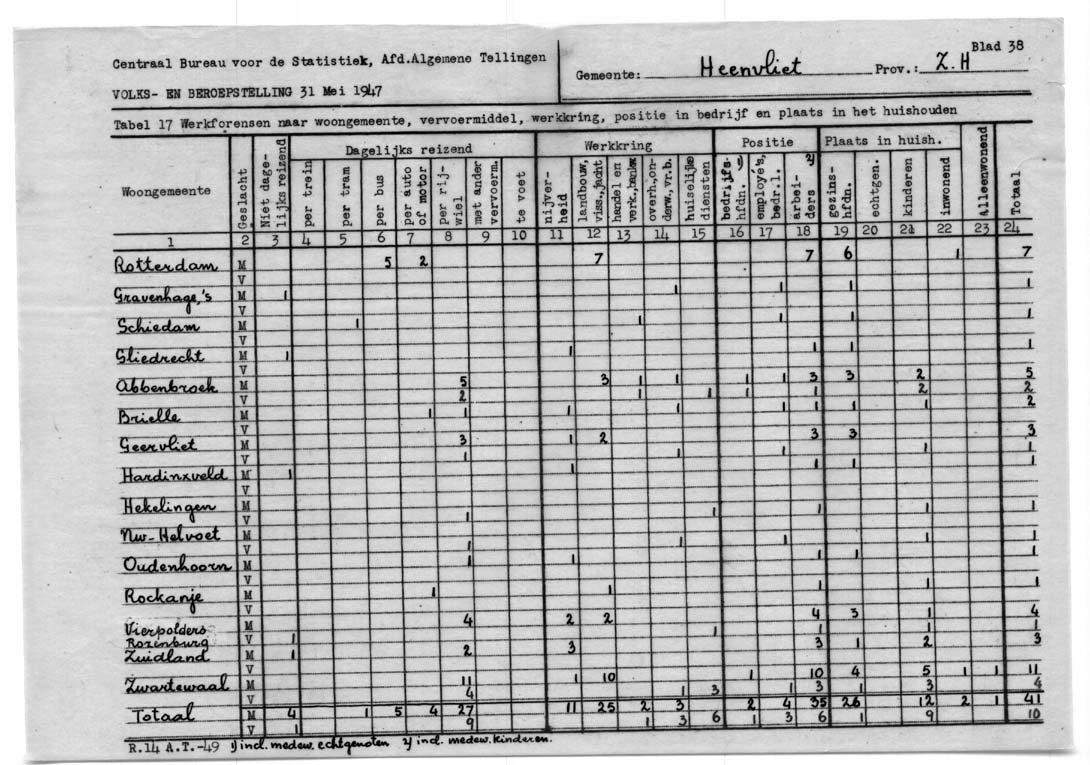 Blad 38
Centraal Bureau voor de Statistiek, Afd.Algemene Tellingen
Gemeente: Heenvliet Prov.: Z.H
VOLKS- EN BEROEPSTELLING 31 Mei 1947
Tabel 17 Werkforensen naar woongemeente, vervoermiddel, werkkring, positie in bedrijf en plaats in het huishouden
Woongemeente Geslacht Niet dage-lijks reizend Dagelijks reizend Werkkring Positie Plaats in huish. Alleenwonend Totaal
per trein per tram per bus per auto of motor per rij-wiel met ander vervoerm. te voet nijver-heid landbouw, viss.,jacht handel en verk.,bankw overh.,on-derw.,vr.b. huiselijke diensten bedrijfs-hfdn. 1) employé's, bedr.l. arbei-ders 2) gezins-hfdn. echtgen. kinderen inwonend
1 2 3 4 5 6 7 8 9 10 11 12 13 14 15 16 17 18 19 20 21 22 23 24
Rotterdam M 5 2 7 7 6 1 7
V
Gravenhage,'s M 1 1 1 1 1
V
Schiedam M 1 1 1 1 1
V
Sliedrecht M 1 1 1 1 1
V
Abbenbroek M 5 3 1 1 1 1 3 3 2 5
V 2 1 1 1 1 2 2
Brielle M 1 1 1 1 1 1 1 1 2
V
Geervliet M 3 1 2 3 3 3
V 1 1 1 1 1
Hardinxveld M 1 1 1 1 1
V
Hekelingen M
V 1 1 1 1 1
Nw-Helvoet M
V 1 1 1 1 1
Oudenhoorn M 1 1 1 1 1
V
Rockanje M 1 1 1 1 1
V
Vierpolders M 4 2 2 4 3 1 4
Rozenburg V 1 1 1 1 1
Zuidland M 1 2 3 3 1 2 3
V
Zwartewaal M 11 1 10 1 10 4 5 1 1 11
V 4 1 3 1 3 1 3 4
Totaal M 4 1 5 4 27 11 25 2 3 2 4 35 26 12 2 1 41
V 1 9 1 3 6 1 3 6 1 9 10
R.14 A.T.-49 1) incl. medew. echtgenoten 2) incl. medew. kinderen.